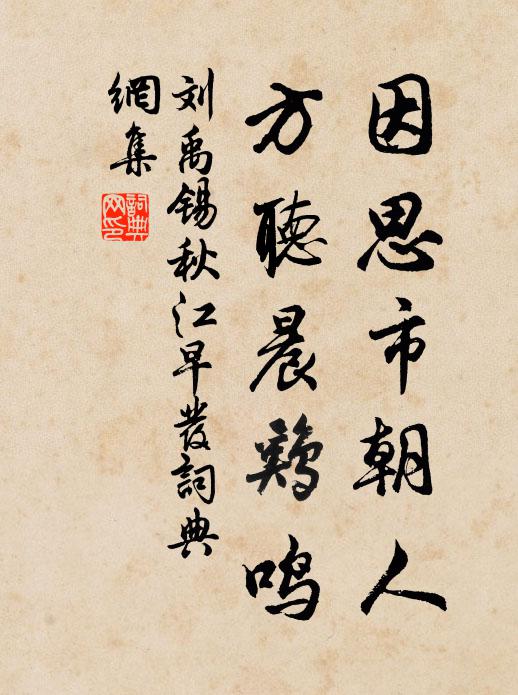 因思市朝人
方聽晨鷄鸣
刘禹锡秋江早發詞典
網集
詞典
网印